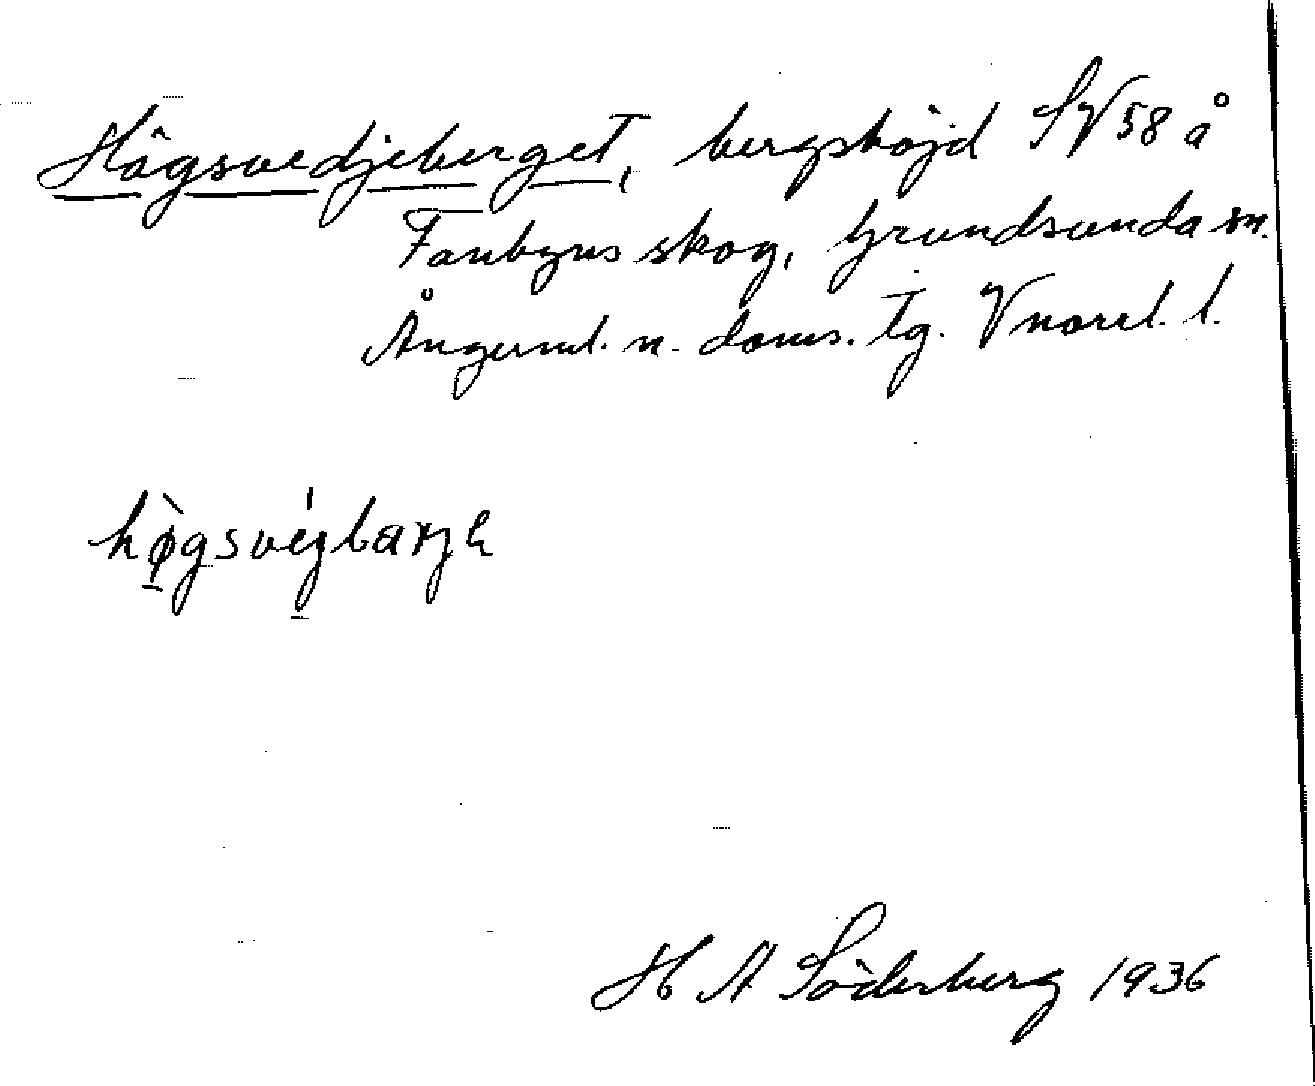 Högsvedjeberget, bergshöjd SV 58 å
Fanbyns skog, Grundsunda sn.
Ångerml. n. doms. tg. Vnorrl. l.
hø̀gsvéjbarjɛ
H A Söderberg 1936